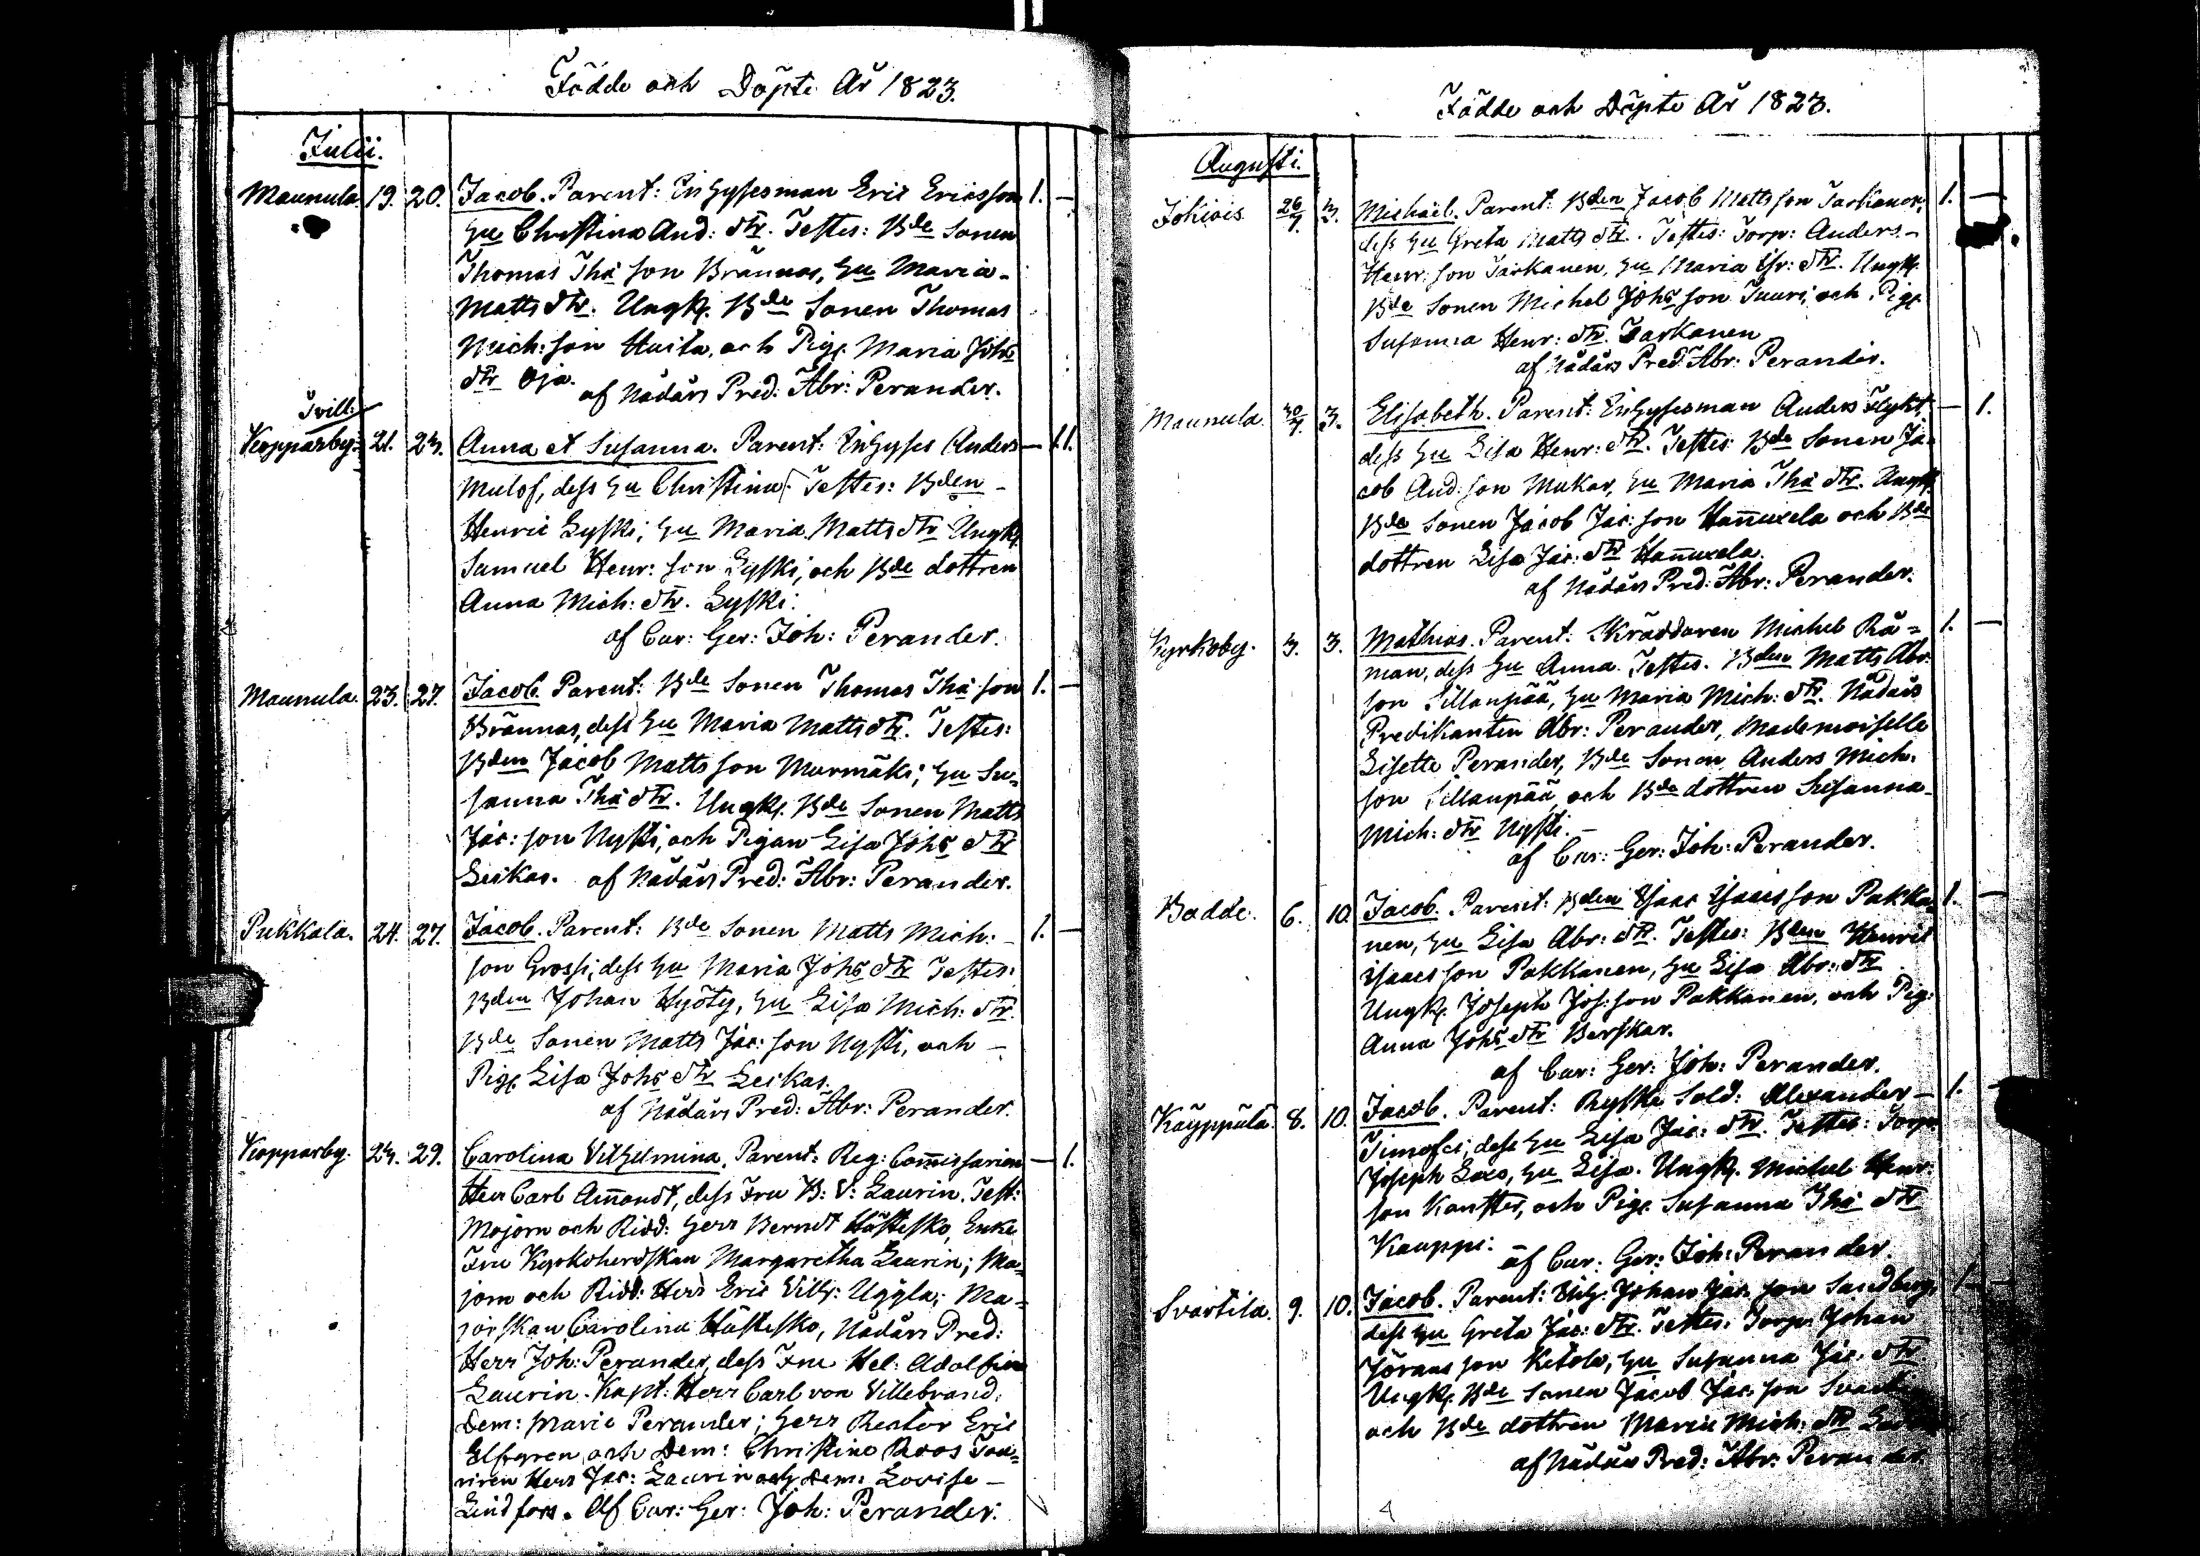 Födde och Döpte År 1823.
Julii.
Maunula. 19. 20. Jacob. Parent: Inhysesman Eric Ericsson 1. —
Hu Christina And: dtr. Testes: Bde Sonen
Thomas Ths son Brännas, Hu Maria
Matts dtr. Ungk. Bde Sonen Thomas
Mich: son Huita, och Pig. Maria Johs
dtr Oja.
af Nådårs Pred: Abr: Perander.
Tvill:
Kopparby. 21. 23. Anna et Susanna. Parent: Inhyses Anders — 1.1.
Mulof, dess Hu Christina. Testes: Bden
Henric Lyski, Hu Maria Matts dtr Ungk.
Samuel Henr: son Lyski, och Bde dottren
Anna Mich: dtr. Lyski.
af Cur: Ger: Joh: Perander.
Maunula. 23. 27. Jacob. Parent: Bde Sonen Thomas Ths son 1. —
Brännas, dess Hu Maria Matts dtr. Testes:
Bden Jacob Matts son Murmäki, Hu Su-
sanna Ths dtr. Ungk. Bde Sonen Matts
Jac: son Nysti, och Pigan Lisa Johs dtr
Leikas. af Nådårs Pred: Abr: Perander.
Pukkala. 24. 27. Jacob. Parent: Bde Sonen Matts Mich: 1. —
son Grossi, dess Hu Maria Johs dtr Testes:
Bden Johan Hyöty, Hu Lisa Mich: dtr.
Bde Sonen Matts Jac: son Nysti, och
Pig. Lisa Johs dtr Leikas.
af Nådårs Pred: Abr: Perander.
Kopparby. 24. 29. Carolina Vilhelmina. Parent: Reg: Commissarien — 1.
Herr Carl Amondt, dess Fru B: V: Laurin. Test:
Majorn och Ridd: Herr Berndt Hästesko, Enke
Fru Kyrkoherdskan Margaretha Laurin; Ma-
jorn och Ridd: Herr Eric Vilh: Uggla; Ma-
jorskan Carolina Hästesko, Nådårs Pred:
Herr Joh: Perander, dess Fru Hel: Adolfina
Laurin. Kapt: Herr Carl von Villebrand;
Dem: Marie Perander; Herr Rector Eric
Elfgren, och Dem: Christine Roos
Herr Jac: Laurin och Dem: Lovise
Lindfors. Af Cur: Ger: Joh: Perander.
Födde och Döpte År 1823.
Augusti.
Johivis 26/7 3. Michaël. Parent: Bden Jacob Matts son Tarkanen, 1. —
dess Hu Greta Matts dtr. Testes: Torp: Anders
Henr: son Tarkanen, Hu Maria dtr. Ungk.
Bde Sonen Michel Johs son Tuuri, och Pig.
Susanna Henr: dtr. Tarkanen
af Nådårs Pred: Abr: Perander.
Maunula. 30/7 3. Elisabeth. Parent: Inhysesman Anders Flykt, — 1.
dess Hu Lisa Henr: dtr. Testes: Bde Sonen Ja-
cob And: son Mukar, Hu Maria Ths dtr. Ungk.
Bde Sonen Jacob Jac: son Hannuxela och Bde
dottren Lisa Jac: dtr Hannuxela.
af Nådårs Pred: Abr: Perander.
Kyrkoby. 3. 3. Mathias. Parent: Skräddaren Michel Rå- 1. —
man, dess Hu Anna. Testes. Bden Matts Abr:
son Sillanpää, Hu Maria Mich: dtr. Nådårs
Predikanten Abr: Perander, Mademoiselle
Lisette Perander, Bde Sonen Anders Mich:
son Sillanpää, och Bde dottren Susanna
Mich: dtr Nysti.
af Cur: Ger: Joh: Perander.
Badde. 6. 10. Jacob. Parent: Bden Isaac Isaacs son Pakka- 1. —
nen, Hu Lisa Abr: dtr. Testes: Bden Henric
Isaacs son Pakkanen, Hu Lisa Abr: dtr
Ungk. Joseph Jos: son Pakkanen, och Pig:
Anna Johs dtr Berskar.
af Cur: Ger: Joh: Perander.
Käyppälä. 8. 10. Jacob. Parent: Ryske Sold: Alexander 1. —
Timofei, dess Hu Lisa Jac: dtr. Testes: Torp:
Joseph, Hu Lisa. Ungk. Michel Henr:
son, och Pig. Susanna Ths dtr
Kauppi.
af Cur: Ger: Joh: Perander.
Svartila. 9. 10. Jacob. Parent: Johan Jac: son Sandberg, 1. —
dess Hu Greta Jac: dtr. Testes: Torp: Johan
Görans son Ketola, Hu Susanna Jac: dtr
Ungk. Bde Sonen Jacob Jac: son
och Bde dottren Maria Mich: dtr
af Nådårs Pred: Abr: Perander.